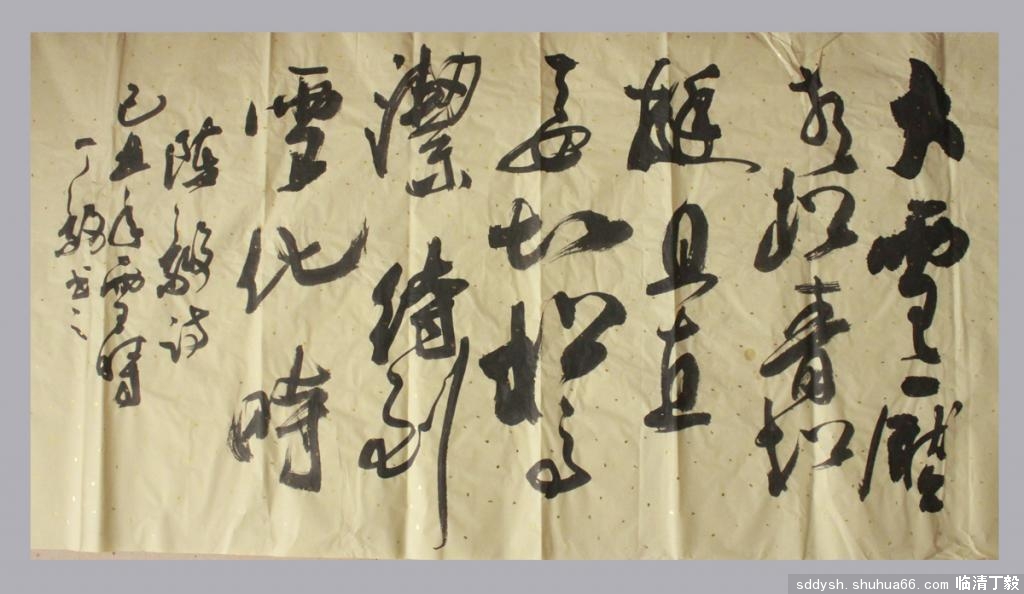 大雪壓
青松青松
挺且直
要知松高
潔待到
雪化時
陳毅詩
己丑年雪時
丁毅书之
sddysh.shuhua66.com 临清丁毅